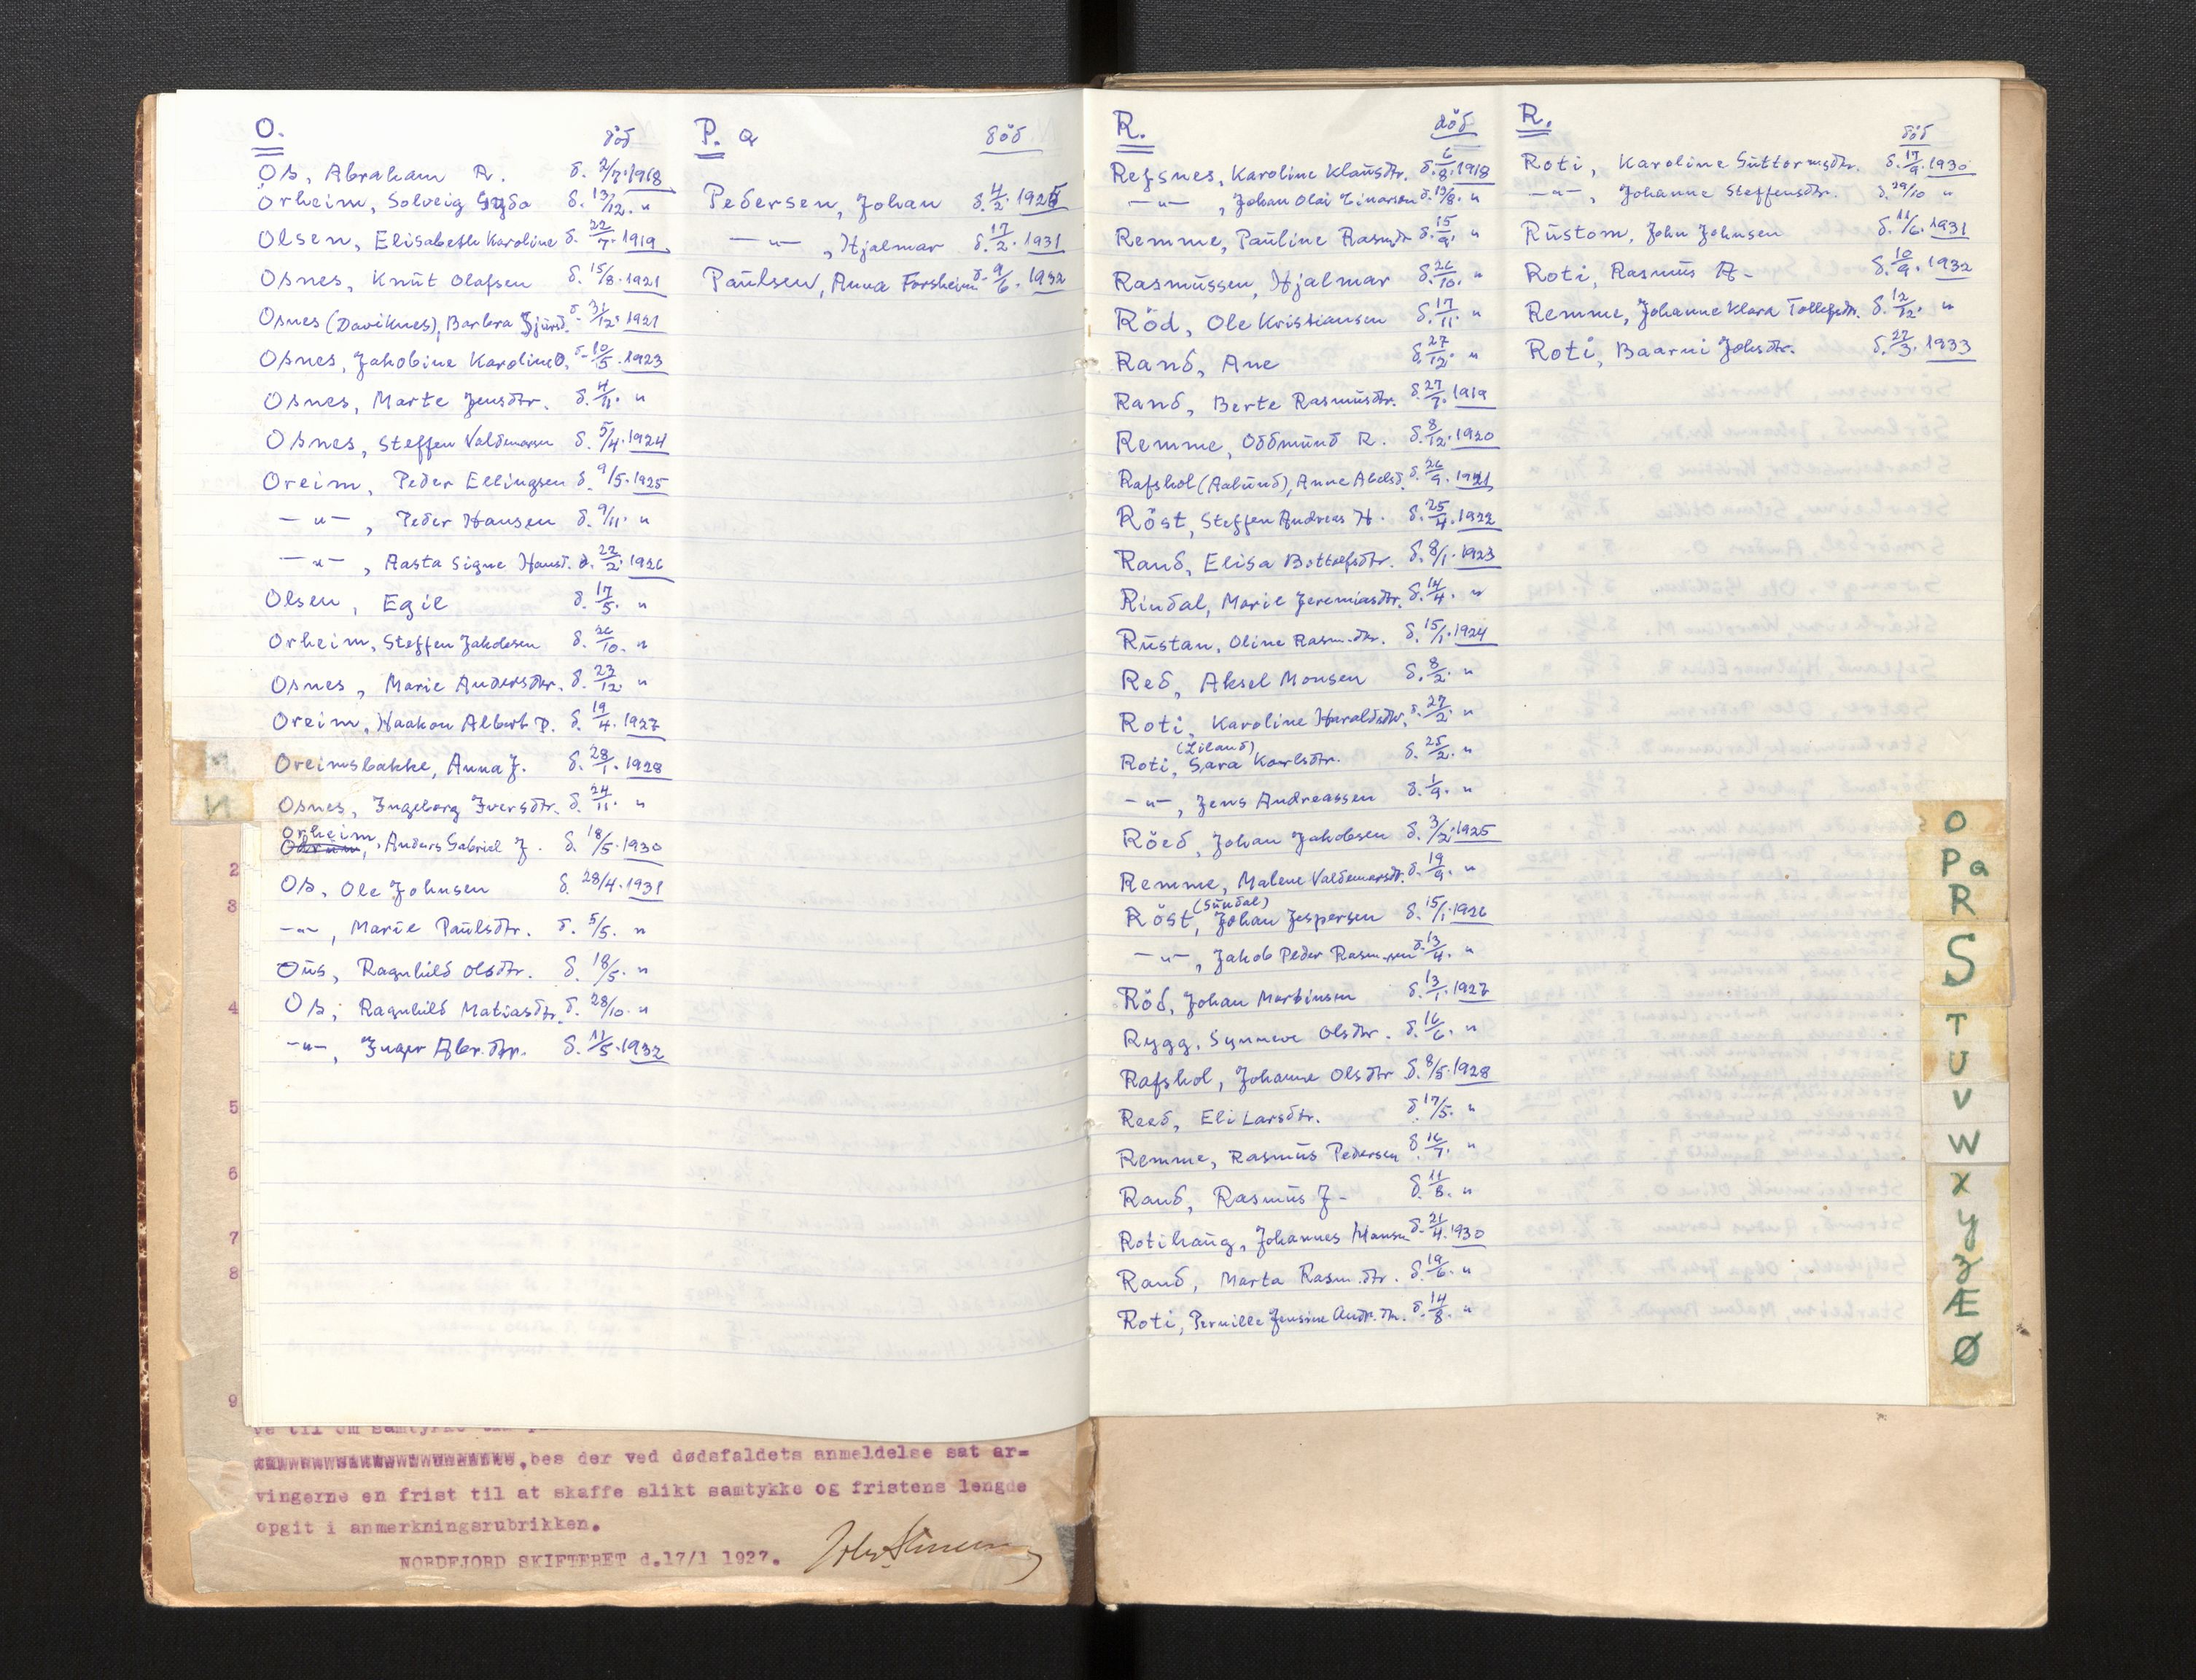 O. död
Os, Abraham R. d. 2/7. 1918
Orheim, Solveig Syda d. 13/12. "
Olsen, Elisabeth Karoline d. 22/7. 1919
Osnes, Knūt Olafsen d. 15/8. 1921
Osnes (Daviknes), Barbra d. 31/12. 1921
Osnes, Jakobine Karoline O. d. 10/5. 1923
Osnes, Marte Jensdtr. d. 4/11. "
Osnes, Steffen Valdemarsen d. 5/4. 1924
Oreim, Peder Ellingsen d. 9/5. 1925
—"—, Peder Hansen d. 9/11. "
—"—, Aasta Signe Hansd. d. 22/2. 1926
Olsen, Egil d. 17/5. "
Orheim, Steffen Jakobsen d. 26/10. "
Osnes, Marie Andersdtr. d. 23/12. "
Oreim, Haakon Albert P. d. 19/4. 1927
Oreimsbakke, Anna J. d. 28/1. 1928
Osnes, Ingeborg Iversdtr. d. 24/11. "
Orheim, Anders Gabriel J. d. 18/5. 1930
Os, Ole Johnsen d. 28/4. 1931
—"—, Marie Paūlsdtr. d. 5/5. "
Oūs, Ragnhild Olsdtr. d. 18/5. "
Os, Ragnhild Matiasdtr. d. 28/10. "
—"—, Inger Abr.dtr. d. 11/5. 1932
P. Q död
Pedersen, Johan d. 4/2. 1925
—"—, Hjalmar d. 17/2. 1931
Paūlsen, Anna Forsheim d. 9/6. 1932
R. död
Refsnes, Karoline Klaūsdtr. d. 6/8. 1918
—"—, Johan Olai Einarsen d. 13/8. "
Remme, Paūline Rasmdtr d. 15/9. "
Rasmūssen, Hjalmar d. 26/10. "
Röd, Ole Kristiansen d. 17/11. "
Rand, Ane d. 27/12. "
Rand, Berte Rasmūsdtr. d. 27/7. 1919
Remme, Oddmūnd R. d. 8/12. 1920
Rafshol (Aalūnd), Anne Abelsd. d. 26/9. 1921
Röst, Steffen Andreas H. d. 25/4. 1922
Rand, Elisa Bottolfsdtr. d. 8/1. 1923
Rindal, Marie Jeremiasdtr. d. 14/4. "
Rūstan, Oline Rasm.dtr. d. 15/1. 1924
Red, Aksel Monsen d. 8/2. "
Roti, Karoline Haraldsdtr. d. 27/2. "
Roti, (Liland) Sara Karlsdtr. d. 25/2. "
—"—, Jens Andreassen d. 1/9. "
Röed, Johan Jakobsen d. 3/2. 1925
Remme, Malene Valdemarsdt. d. 19/9. "
Röst, (Sūndal) Johan Jespersen d. 15/1. 1926
—"—, Jakob Peder Rasm.sen d. 13/4. "
Röd, Johan Martinsen d. 13/1. 1927
Rygg, Synneve Olsdtr. d. 16/6. "
Rafshol, Johanne Olsdtr d. 8/5. 1928
Reed, Eli Larsdtr. d. 17/5. "
Remme, Rasmūs Pedersen d. 16/7. "
Rand, Rasmūs J- d. 11/8. "
Rotihaūg, Johannes Hansen d. 21/4. 1930
Rand, Marta Rasm.dtr. d. 19/6. "
Roti, Pernille Jensine Andr.dtr. d. 14/8. "
R. död
Roti, Karoline Gūttormsdtr. d. 17/9. 1930
—"—, Johanne Steffensdtr. d. 29/10 "
Rūstom, John Johnsen d. 11/6. 1931
Roti, Rasmūs A- d. 10/9. 1932
Remme, Johanne Klara Tollefsdtr. d. 12/12. "
Roti, Baarni Johsdtr. d. 22/3. 1933
M.
N
O
P Q
R
S
T
U
V
W
X
Y
Z
Æ
Ø
2
3
4
5
6
7
8
9
bes der ved dødsfaldets anmeldelse sat ar=
vingerne en frist til at skaffe slikt samtykke og fristens lengde
opgit i anmerkningsrubrikken.
NORDFJORD SKIFTERET d.17/1 1927.